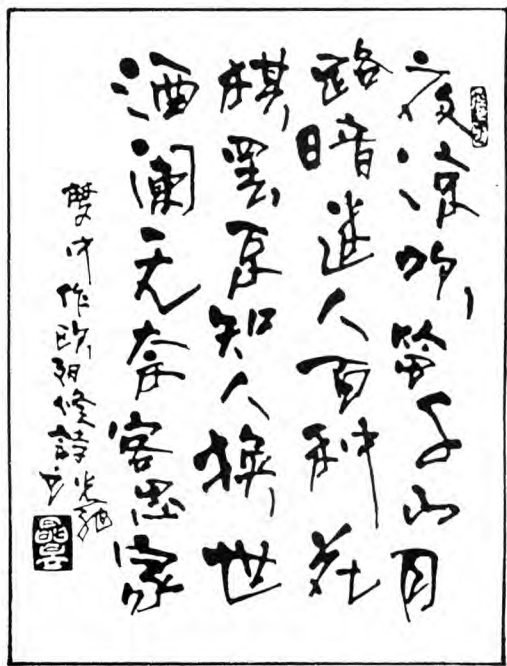 夜凉吹笛千山月
路暗迷人百种花
棋罢不知人换世
酒澜无奈客思家
梦中作欧阳修詩